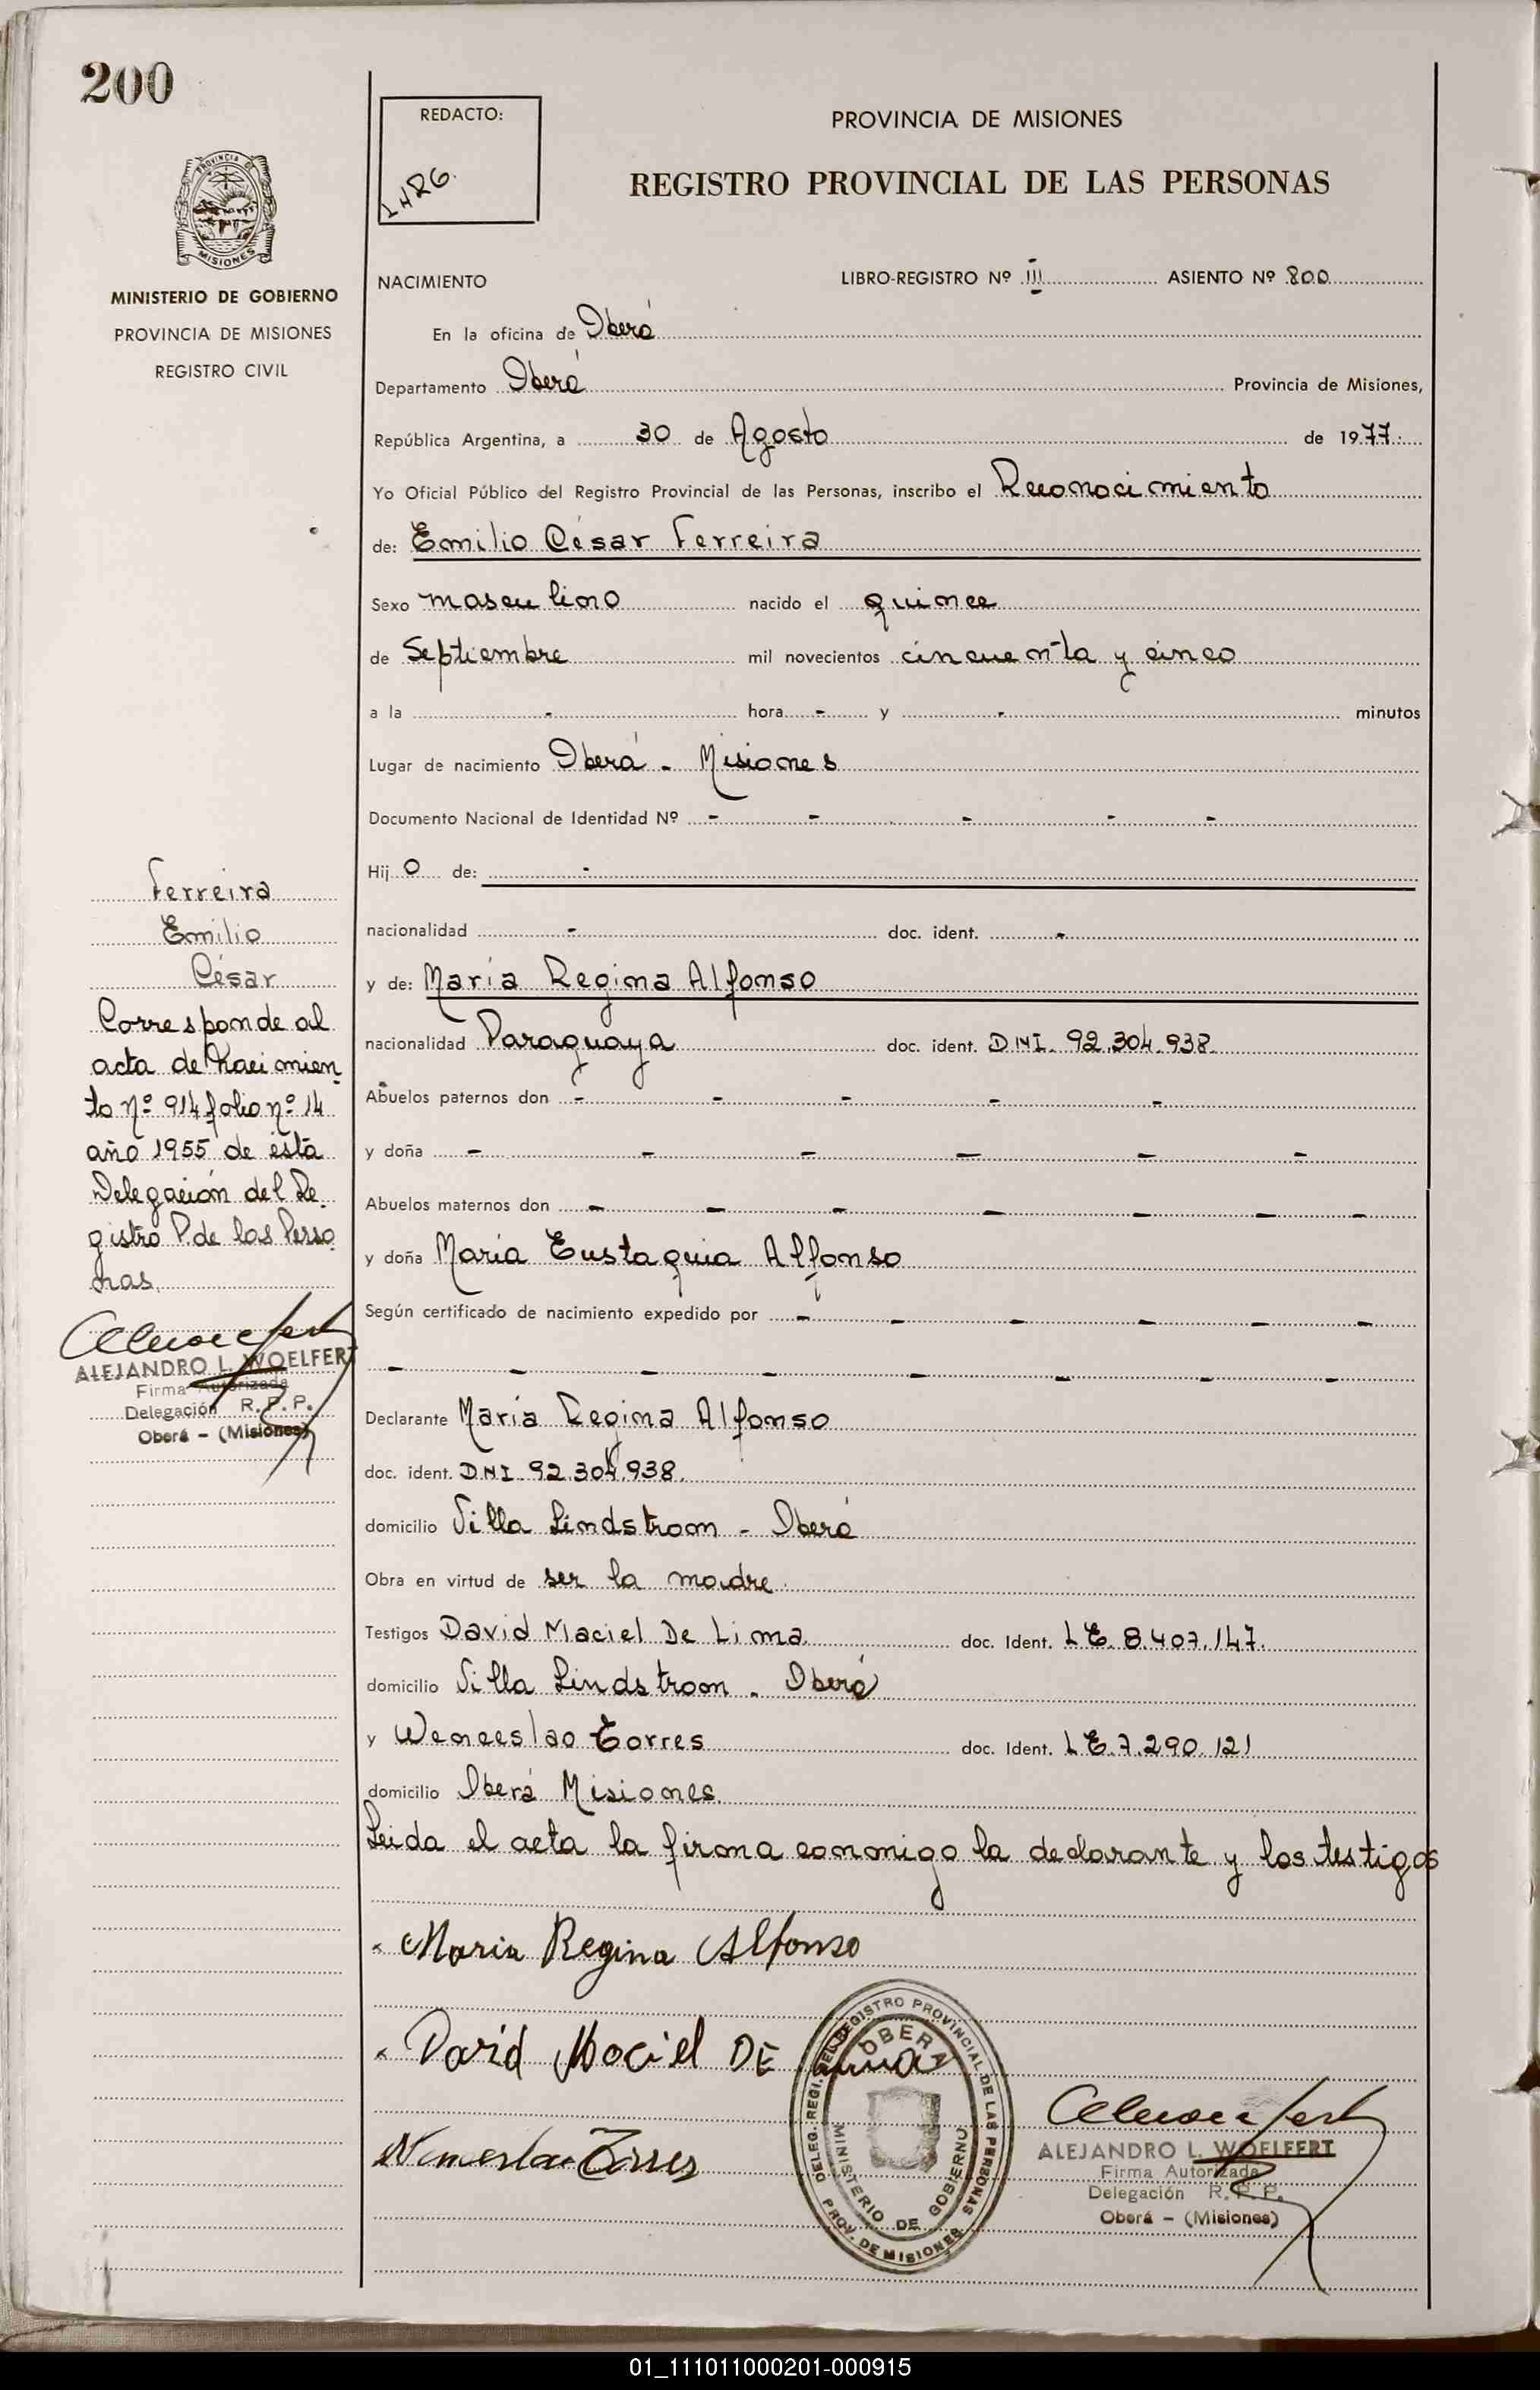 200
REDACTO:
HRG.
PROVINCIA DE MISIONES
REGISTRO PROVINCIAL DE LAS PERSONAS
PROVINCIA DE
MISIONES
MINISTERIO DE GOBIERNO
PROVINCIA DE MISIONES
REGISTRO CIVIL
NACIMIENTO LIBRO-REGISTRO Nº III ASIENTO Nº 800
En la oficina de Oberá
Departamento Oberá Provincia de Misiones,
República Argentina, a 30 de Agosto de 1977.
Yo Oficial Público del Registro Provincial de las Personas, inscribo el Reconocimiento
de: Emilio César Ferreira
Sexo masculino nacido el quince
de Septiembre mil novecientos cincuenta y cinco
a la - hora - y - minutos
Lugar de nacimiento Oberá - Misiones
Documento Nacional de Identidad Nº - - - - -
Hijo de: -
nacionalidad - doc. ident. -
y de: María Regina Alfonso
nacionalidad Paraguaya doc. ident. DNI. 92.304.938
Abuelos paternos don - - - - -
y doña - - - - - -
Abuelos maternos don - - - - - - -
y doña María Eustaquia Alfonso
Según certificado de nacimiento expedido por - - - - - -
- - - - - - - - -
Declarante María Regina Alfonso
doc. ident. DNI. 92.304.938.
domicilio Villa Lindstrom - Oberá
Obra en virtud de ser la madre.
Testigos David Maciel De Lima doc. Ident. LE. 8.407.147.
domicilio Villa Lindstrom - Oberá
y Wenceslao Torres doc. Ident. LE. 7.290.121
domicilio Oberá Misiones
Leida el acta la firma conmigo la declarante y los testigos
Maria Regina Alfonso
David Maciel DE Lima
Torres
DELEG. REGI. DEL REGISTRO PROVINCIAL DE LAS PERSONAS
OBERA
MINISTERIO DE GOBIERNO
PROV. DE MISIONES
ALEJANDRO L. WOELFERT
Firma Autorizada
Delegación R. P. P.
Oberá - (Misiones)
Ferreira
Emilio
César
Corresponde al
acta de Nacimien
to Nº 914 folio nº 14
año 1955 de esta
Delegación del Re
gistro P. de las Perso
nas.
ALEJANDRO L. WOELFERT
Firma Autorizada
Delegación R. P. P.
Oberá - (Misiones)
01_111011000201-000915